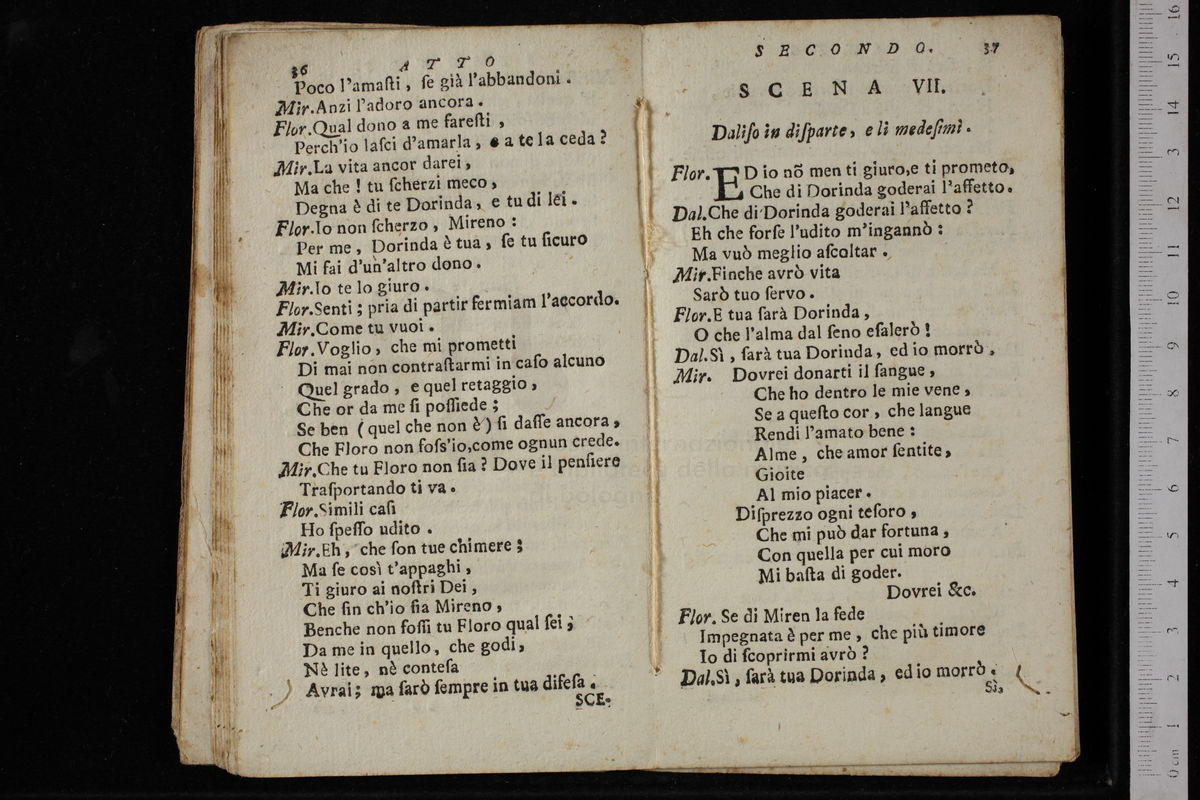 36 ATTO
Poco l'amaſti, ſe già l'abbandoni.
Mir. Anzi l'adoro ancora.
Flor. Qual dono a me fareſti,
Perch'io laſci d'amarla, e a te la ceda?
Mir. La vita ancor darei,
Ma che! tu ſcherzi meco,
Degna è di te Dorinda, e tu di lei.
Flor. Io non ſcherzo, Mireno:
Per me, Dorinda è tua, ſe tu ſicuro
Mi fai d'un'altro dono.
Mir. Io te lo giuro.
Flor. Senti; pria di partir fermiam l'accordo.
Mir. Come tu vuoi.
Flor. Voglio, che mi prometti
Di mai non contraſtarmi in caſo alcuno
Quel grado, e quel retaggio,
Che or da me ſi poſſiede;
Se ben (quel che non è) ſi daſſe ancora,
Che Floro non foſs'io, come ognun crede.
Mir. Che tu Floro non ſia? Dove il penſiero
Traſportando ti va.
Flor. Simili caſi
Ho ſpeſſo udito.
Mir. Eh, che ſon tue chimere;
Ma ſe così t'appaghi,
Ti giuro ai noſtri Dei,
Che fin ch'io ſia Mireno,
Benche non foſſi tu Floro qual ſei;
Da me in quello, che godi,
Nè lite, nè conteſa
Avrai; ma ſarò ſempre in tua difeſa.
SCE-
SECONDO. 37
SCENA VII.
Daliſo in diſparte, e li medeſimi.
Flor. ED io nõ men ti giuro, e ti prometo,
Che di Dorinda goderai l'affetto.
Dal. Che di Dorinda goderai l'affetto?
Eh che forſe l'udito m'ingannò:
Ma vuò meglio aſcoltar.
Mir. Finche avrò vita
Sarò tuo ſervo.
Flor. E tua ſarà Dorinda,
O che l'alma dal ſeno eſalerò!
Dal. Sì, ſarà tua Dorinda, ed io morrò,
Mir. Dovrei donarti il ſangue,
Che ho dentro le mie vene,
Se a queſto cor, che langue
Rendi l'amato bene:
Alme, che amor ſentite,
Gioite
Al mio piacer.
Diſprezzo ogni teſoro,
Che mi può dar fortuna,
Con quella per cui moro
Mi baſta di goder.
Dovrei &c.
Flor. Se di Miren la fede
Impegnata è per me, che più timore
Io di ſcoprirmi avrò?
Dal. Sì, ſarà tua Dorinda, ed io morrò.
Sì,